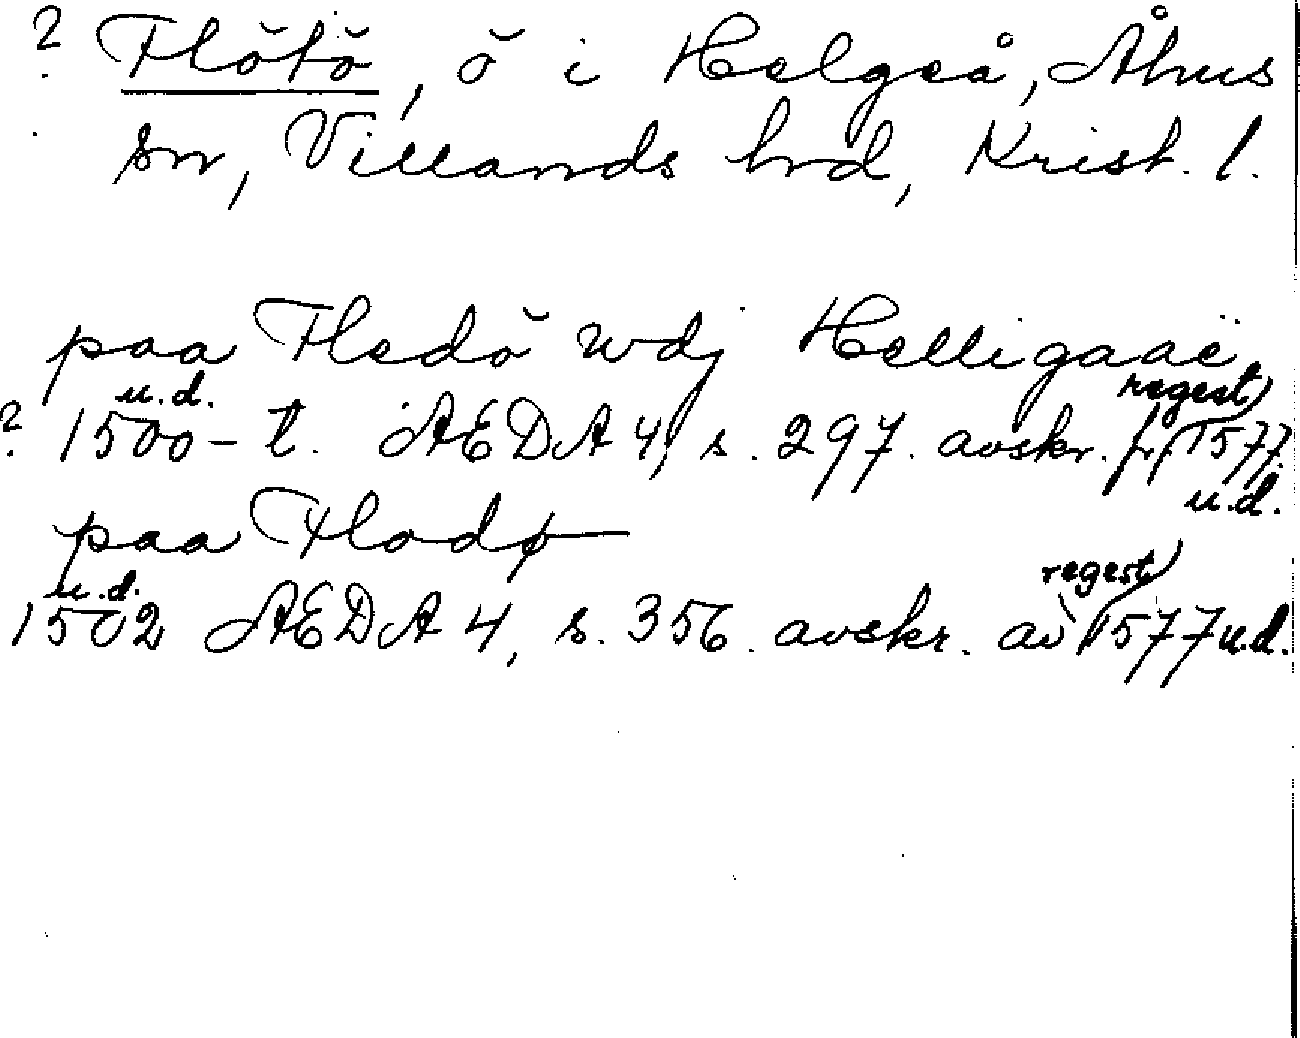 ? Flötö, ö i Helgeå, Åhus
sn, Villands hrd, Krist. l.
paa Fledö wdj Helligaaë
u.d. regest
? 1500-t. ÆDA 4, s. 297. avskr. fr. 1577
u.d.
paa Flodø
u.d. regest
1502 ÆDA 4, s. 356. avskr. av 1577 u.d.